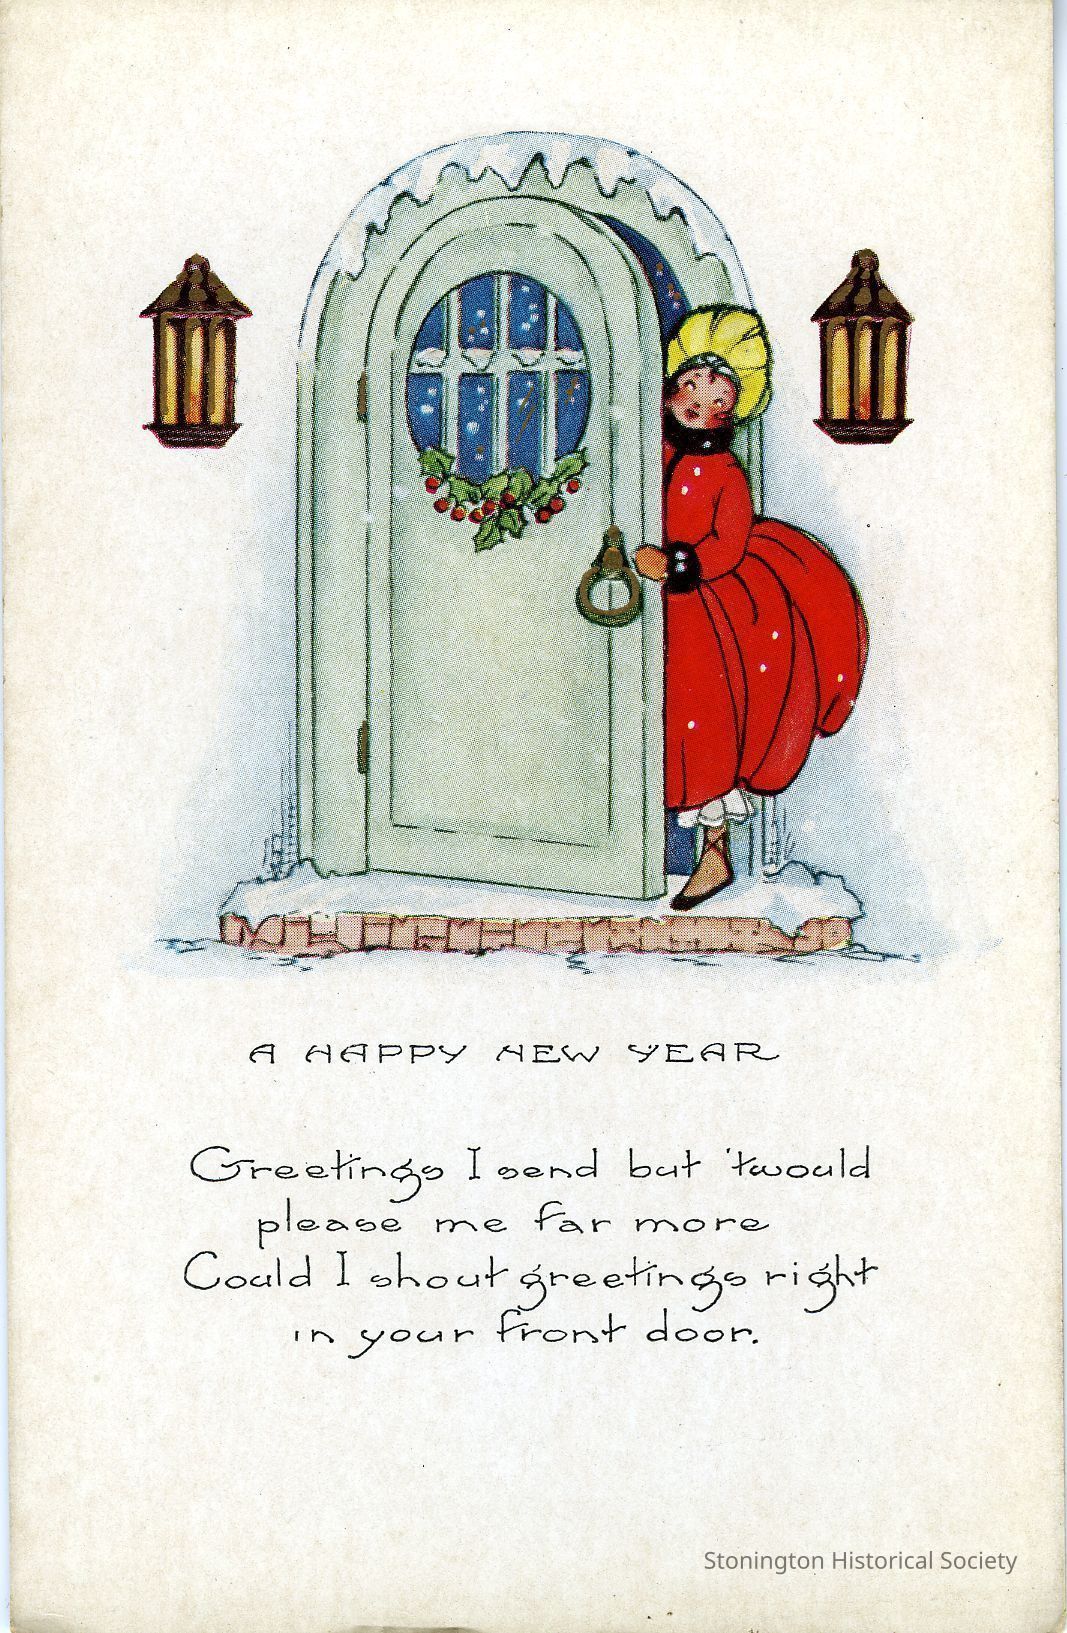 A HAPPY NEW YEAR
Greetings I send but 'twould
please me far more
Could I shout greetings right
in your front door.
Stonington Historical Society